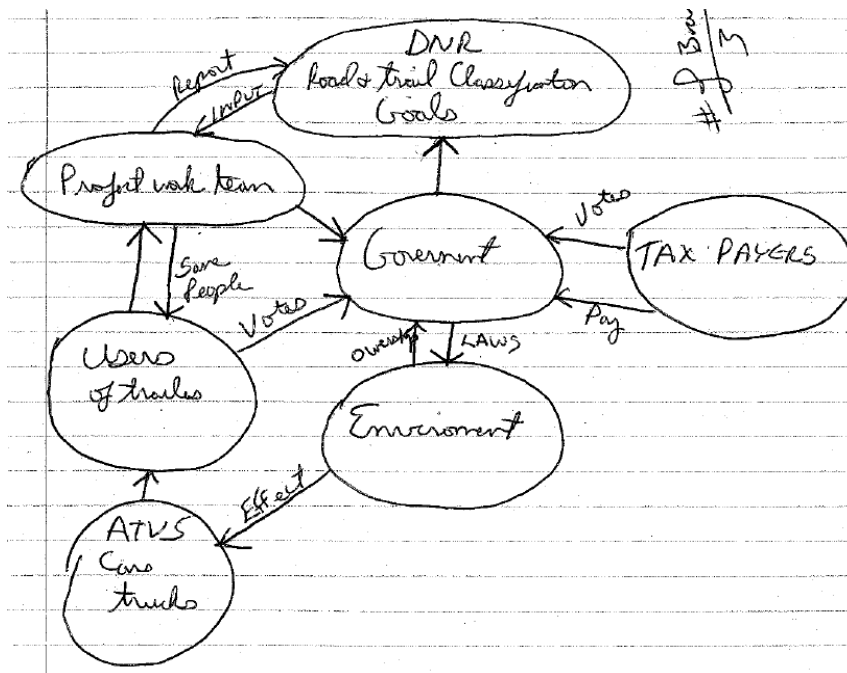 DNR
Road & trail Classification
Goals
Report
INPUT
Project work team
Goverment
Votes
TAX PAYERS
Pay
Same
People
Votes
Owership
LAWS
Users
of trailes
Enviroment
Effect
ATVS
Cars
trucks
#
3